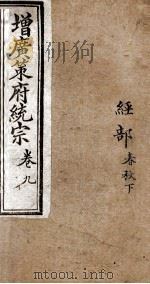 增廣策府統宗 卷九
經部 春秋下
www.gucn.com